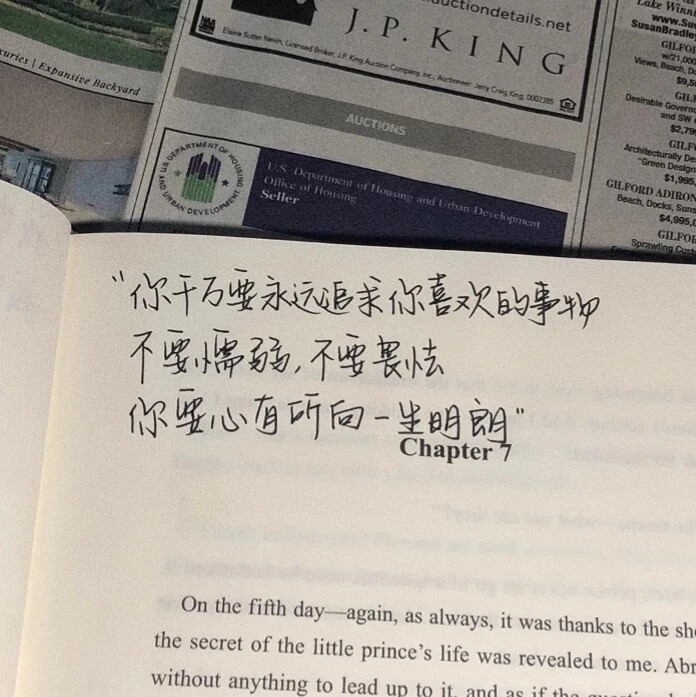 uctiondetails.net
J.P. KING
Elaine Sutter Nevin, Licensed Broker, J.P. King Auction Company, Inc., Auctioneer: Jerry Craig King, 0002385
uries | Expansive Backyard
AUCTIONS
U.S. DEPARTMENT OF HOUSING AND URBAN DEVELOPMENT
U.S. Department of Housing and Urban Development
Office of Housing
Seller
Lake Winni
www.Su
SusanBradley
GILFO
w/21,00
Views, Beach,
$9,5
GIL
Desirable Governo
and SW
$2,79
GILFO
Architecturally De
"Green Design
$1,995,
GILFORD ADIRON
Beach, Docks, Suns
$4,995,0
GILFO
Sprawling Cust
“你千万要永远追求你喜欢的事物
不要懦弱,不要畏怯
你要心有所向一生明朗”
Chapter 7
On the fifth day—again, as always, it was thanks to the she
the secret of the little prince's life was revealed to me. Abr
without anything to lead up to it, and as if the